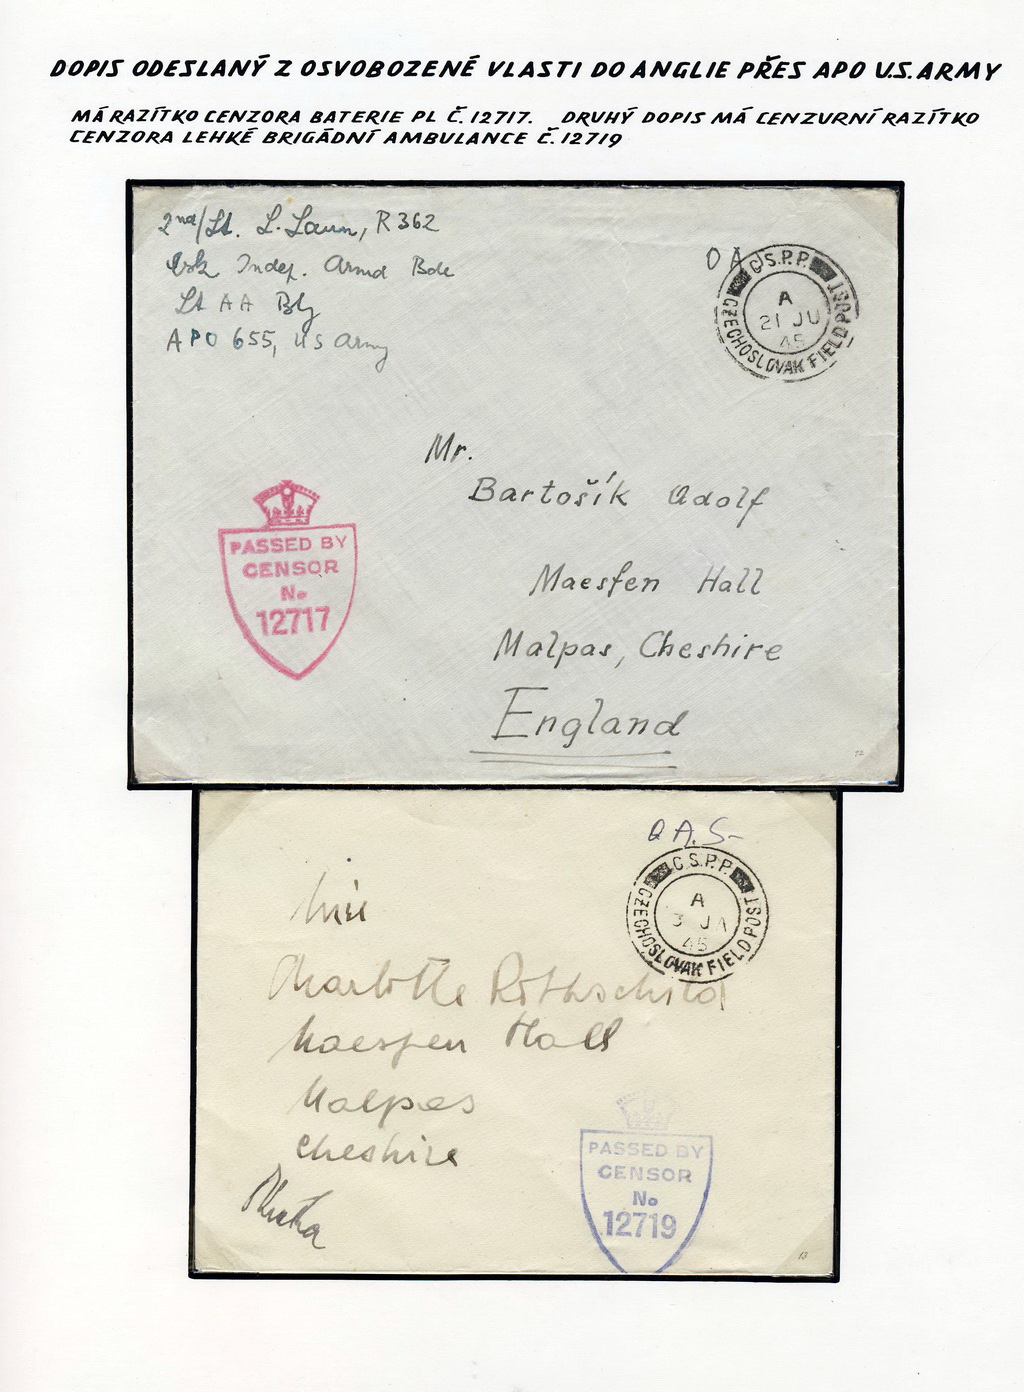 DOPIS ODESLANÝ Z OSVOBOZENÉ VLASTI DO ANGLIE PŘES APO U.S. ARMY
MÁ RAZÍTKO CENZORA BATERIE PL Č. 12717. DRUHÝ DOPIS MÁ CENZURNÍ RAZÍTKO
CENZORA LEHKÉ BRIGÁDNÍ AMBULANCE Č. 12719
2nd/Lt. L. Laun, R 362
Indep. Armd Bde
Lt AA Bty
APO 655, US Army
OA
C.S.P.P.
CZECHOSLOVAK FIELD POST
A
21 JU
45
Mr.
Bartošík Adolf
Maesfen Hall
Malpas, Cheshire
England
PASSED BY
CENSOR
No
12717
12
O A.S-
C.S.P.P.
CZECHOSLOVAK FIELD POST
A
3 JA
45
Charlotte Rothschild
Maesfen Hall
Malpas
Cheshire
PASSED BY
CENSOR
No
12719
13